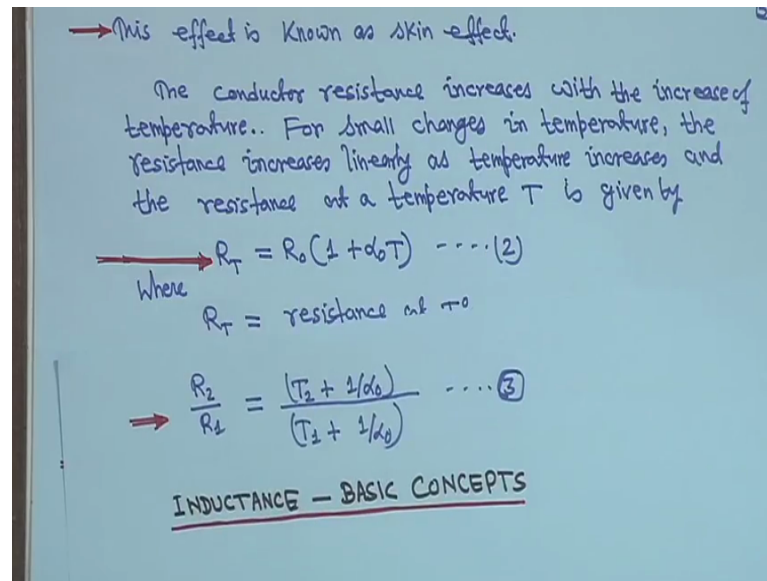 This effect is Known as skin effect.
The conductor resistance increases with the increase of
temperature.. For small changes in temperature, the
resistance increases linearly as temperature increases and
the resistance at a temperature T is given by
R_T = R₀(1 + α₀T) ----(2)
Where
R_T = resistance at T⁰
R₂/R₁ = (T₂ + 1/α₀)/(T₁ + 1/α₀) ....③
INDUCTANCE – BASIC CONCEPTS